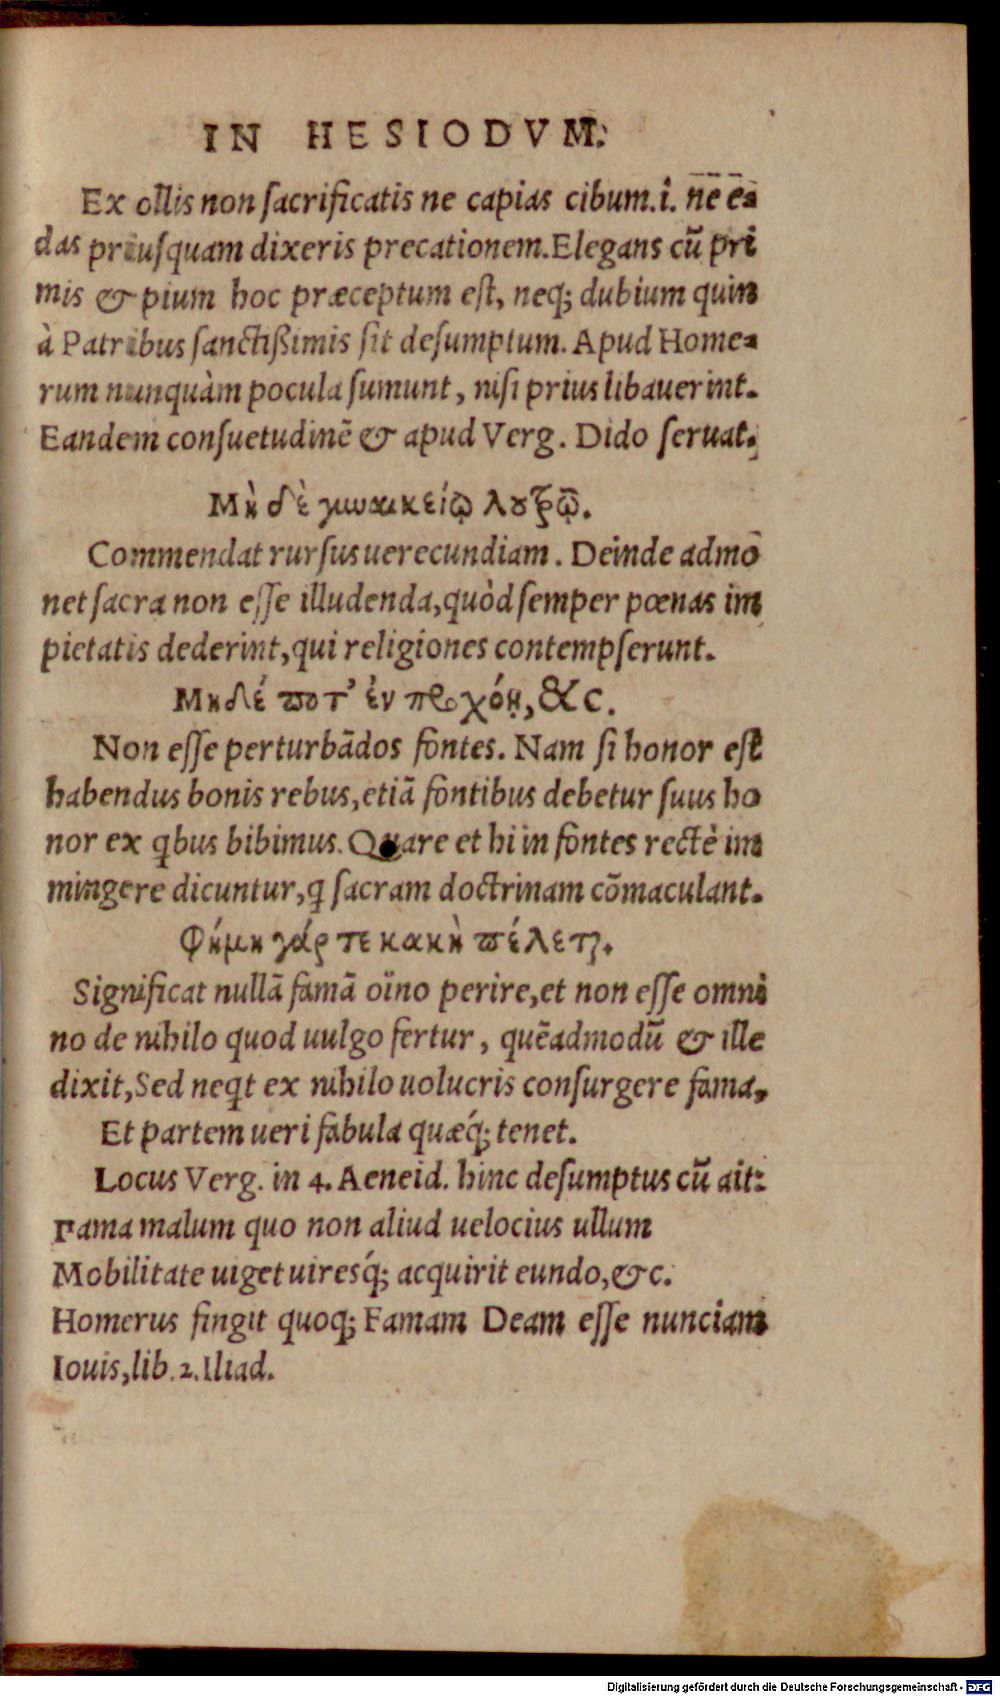 IN HESIODVM.
Ex ollis non sacrificatis ne capias cibum.i. nē ē-
das priusquam dixeris precationem. Elegans cū pri
mis & pium hoc præceptum est, neq; dubium quin
à Patribus sanctißimis sit desumptum. Apud Home-
rum nunquàm pocula sumunt, nisi prius libauerint.
Eandem consuetudinē & apud Verg. Dido seruat.
Μὴ δὲ γυναικείῳ λουτρῷ.
Commendat rursus uerecundiam. Deinde admo
net sacra non esse illudenda, quòd semper pœnas im
pietatis dederint, qui religiones contempserunt.
Μηδέ ποτ' ἐν προχόῃ, &c.
Non esse perturbādos fontes. Nam si honor est
habendus bonis rebus, etiā fontibus debetur suus ho
nor ex qbus bibimus. Quare et hi in fontes rectè im
mingere dicuntur, q sacram doctrinam cōmaculant.
Φήμη γάρ τε κακὴ πέλεται.
Significat nullā famā oīno perire, et non esse omni
no de nihilo quod uulgo fertur, quēadmodū & ille
dixit, Sed neqt ex nihilo uolucris consurgere fama,
Et partem ueri fabula quæq́; tenet.
Locus Verg. in 4. Aeneid. hinc desumptus cū ait:
Fama malum quo non aliud uelocius ullum
Mobilitate uiget uiresq́; acquirit eundo, &c.
Homerus fingit quoq; Famam Deam esse nunciam
Iouis, lib. 2. Iliad.
Digitalisierung gefördert durch die Deutsche Forschungsgemeinschaft - DFG